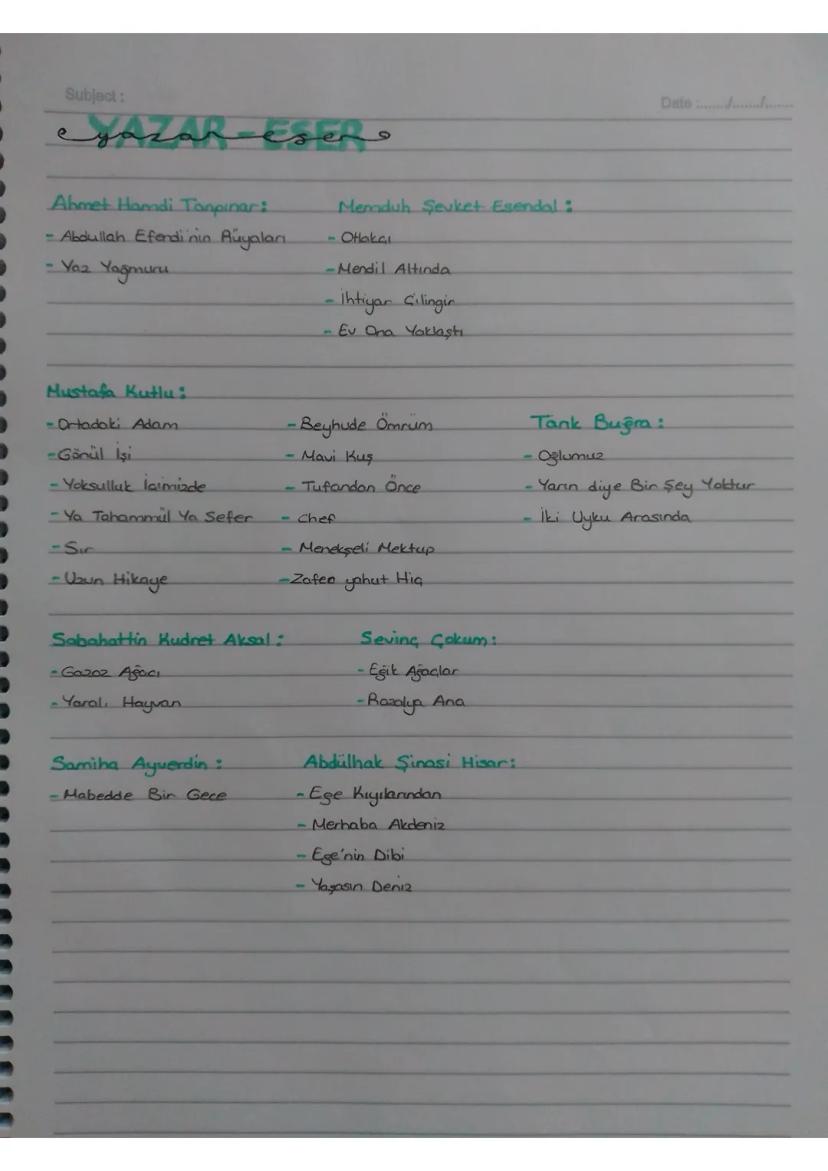 Subject :
Date :....../....../......
YAZAR-ESER
yazar-eser
Ahmet Hamdi Tanpınar:
- Abdullah Efendi'nin Rüyaları
- Yaz Yağmuru
Memduh Şevket Esendal :
- Otlakçı
- Mendil Altında
- İhtiyar Çilingir
- Ev Ona Yakıaştı
Mustafa Kutlu :
- Ortadaki Adam
- Gönül İşi
- Yoksulluk İçimizde
- Ya Tahammül Ya Sefer
- Sır
- Uzun Hikaye
- Beyhude Ömrüm
- Mavi Kuş
- Tufandan Önce
- Chef
- Menekşeli Mektup
- Zafer yahut Hiç
Tarık Buğra :
- Oğlumuz
- Yarın diye Bir Şey Yoktur
- İki Uyku Arasında
Sabahattin Kudret Aksal :
- Gazoz Ağacı
- Yaralı Hayvan
Sevinç Çokum :
- Eğik Ağaçlar
- Rozalya Ana
Samiha Ayverdin :
- Mabedde Bir Gece
Abdülhak Şinasi Hisar :
- Ege Kıyılarından
- Merhaba Akdeniz
- Ege'nin Dibi
- Yaşasın Deniz